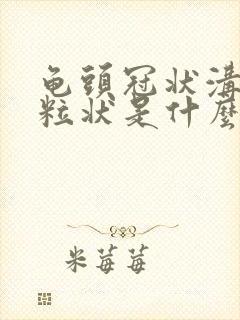 龟頭冠状溝
粒状是什麽
米莓莓